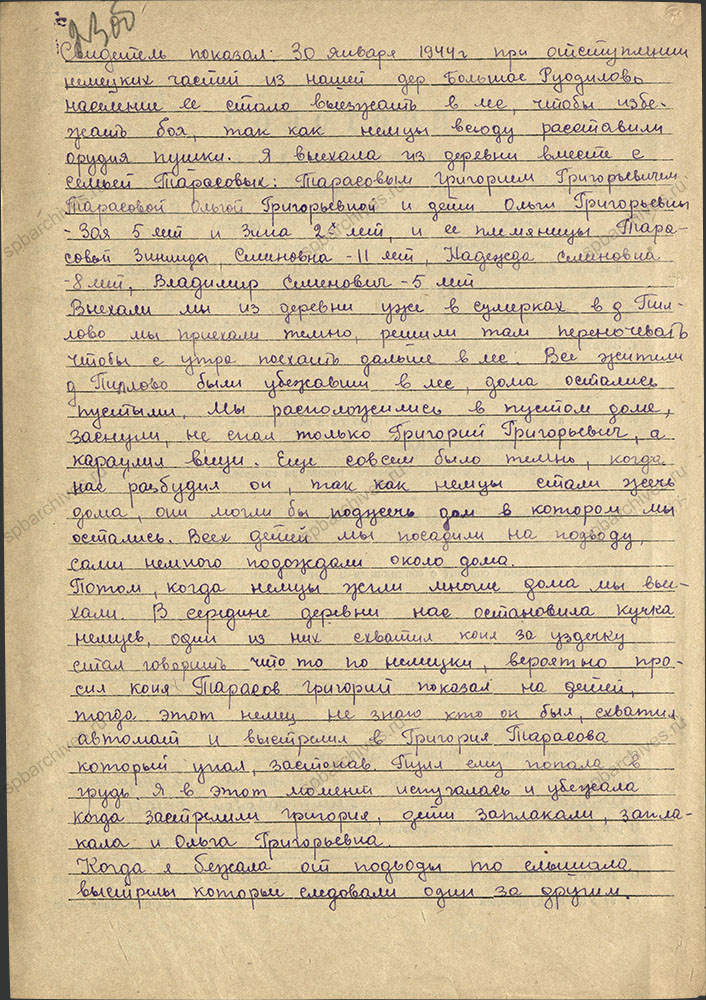 23об
Свидетель показал: 30 января 1944г при отступлении
немецких частей из нашей дер Большое Руддилово
население ее стало выезжать в лес, чтобы избе-
жать боя, так как немцы всюду расставили
орудия пушки. Я выехала из деревни вместе с
семьей Тарасовых: Тарасовым Григорием Григорьевичем
Тарасовой Ольгой Григорьевной и дети Ольги Григорьевны
- Зоя 5 лет и Зина 2х лет, и ее племяницы Тара-
совой Зинаида, Семеновна - 11 лет, Надежда Семеновна
- 8 лет, Владимир Семенович - 5 лет
Выехали мы из деревни уже в сумерках в д Пил-
лово мы приехали темно, решили там переночевать
чтобы с утра поехать дальше в лес. Все жители
д Пиллово были убежавши в лес, дома остались
пустыми. Мы расположились в пустом доме,
заснули, не спал только Григорий Григорьевич, а
караулил вещи. Еще совсем было темно, когда
нас разбудил он, так как немцы стали жечь
дома, они могли бы поджечь дом в котором мы
остались. Всех детей мы посадили на подводу,
сами немного подождали около дома.
Потом, когда немцы жгли многие дома мы вые-
хали. В середине деревни нас остановила кучка
немцев, один из них схватил коня за уздечку
стал говорить что то по немецки, вероятно про-
сил коня Тарасов Григорий показал на детей,
тогда этот немец не знаю кто он был, схватил
автомат и выстрелил в Григория Тарасова
который упал, застонав. Пуля ему попала в
грудь. Я в этот момент испугалась и убежала
когда застрелили Григория, дети заплакали, запла-
кала и Ольга Григорьевна.
Когда я бежала от подводы то слышала
выстрелы которые следовали один за другим.
spbarchives.ru
spbarchives.ru
spbarchives.ru
spbarchives.ru
spbarchives.ru
spbarchives.ru